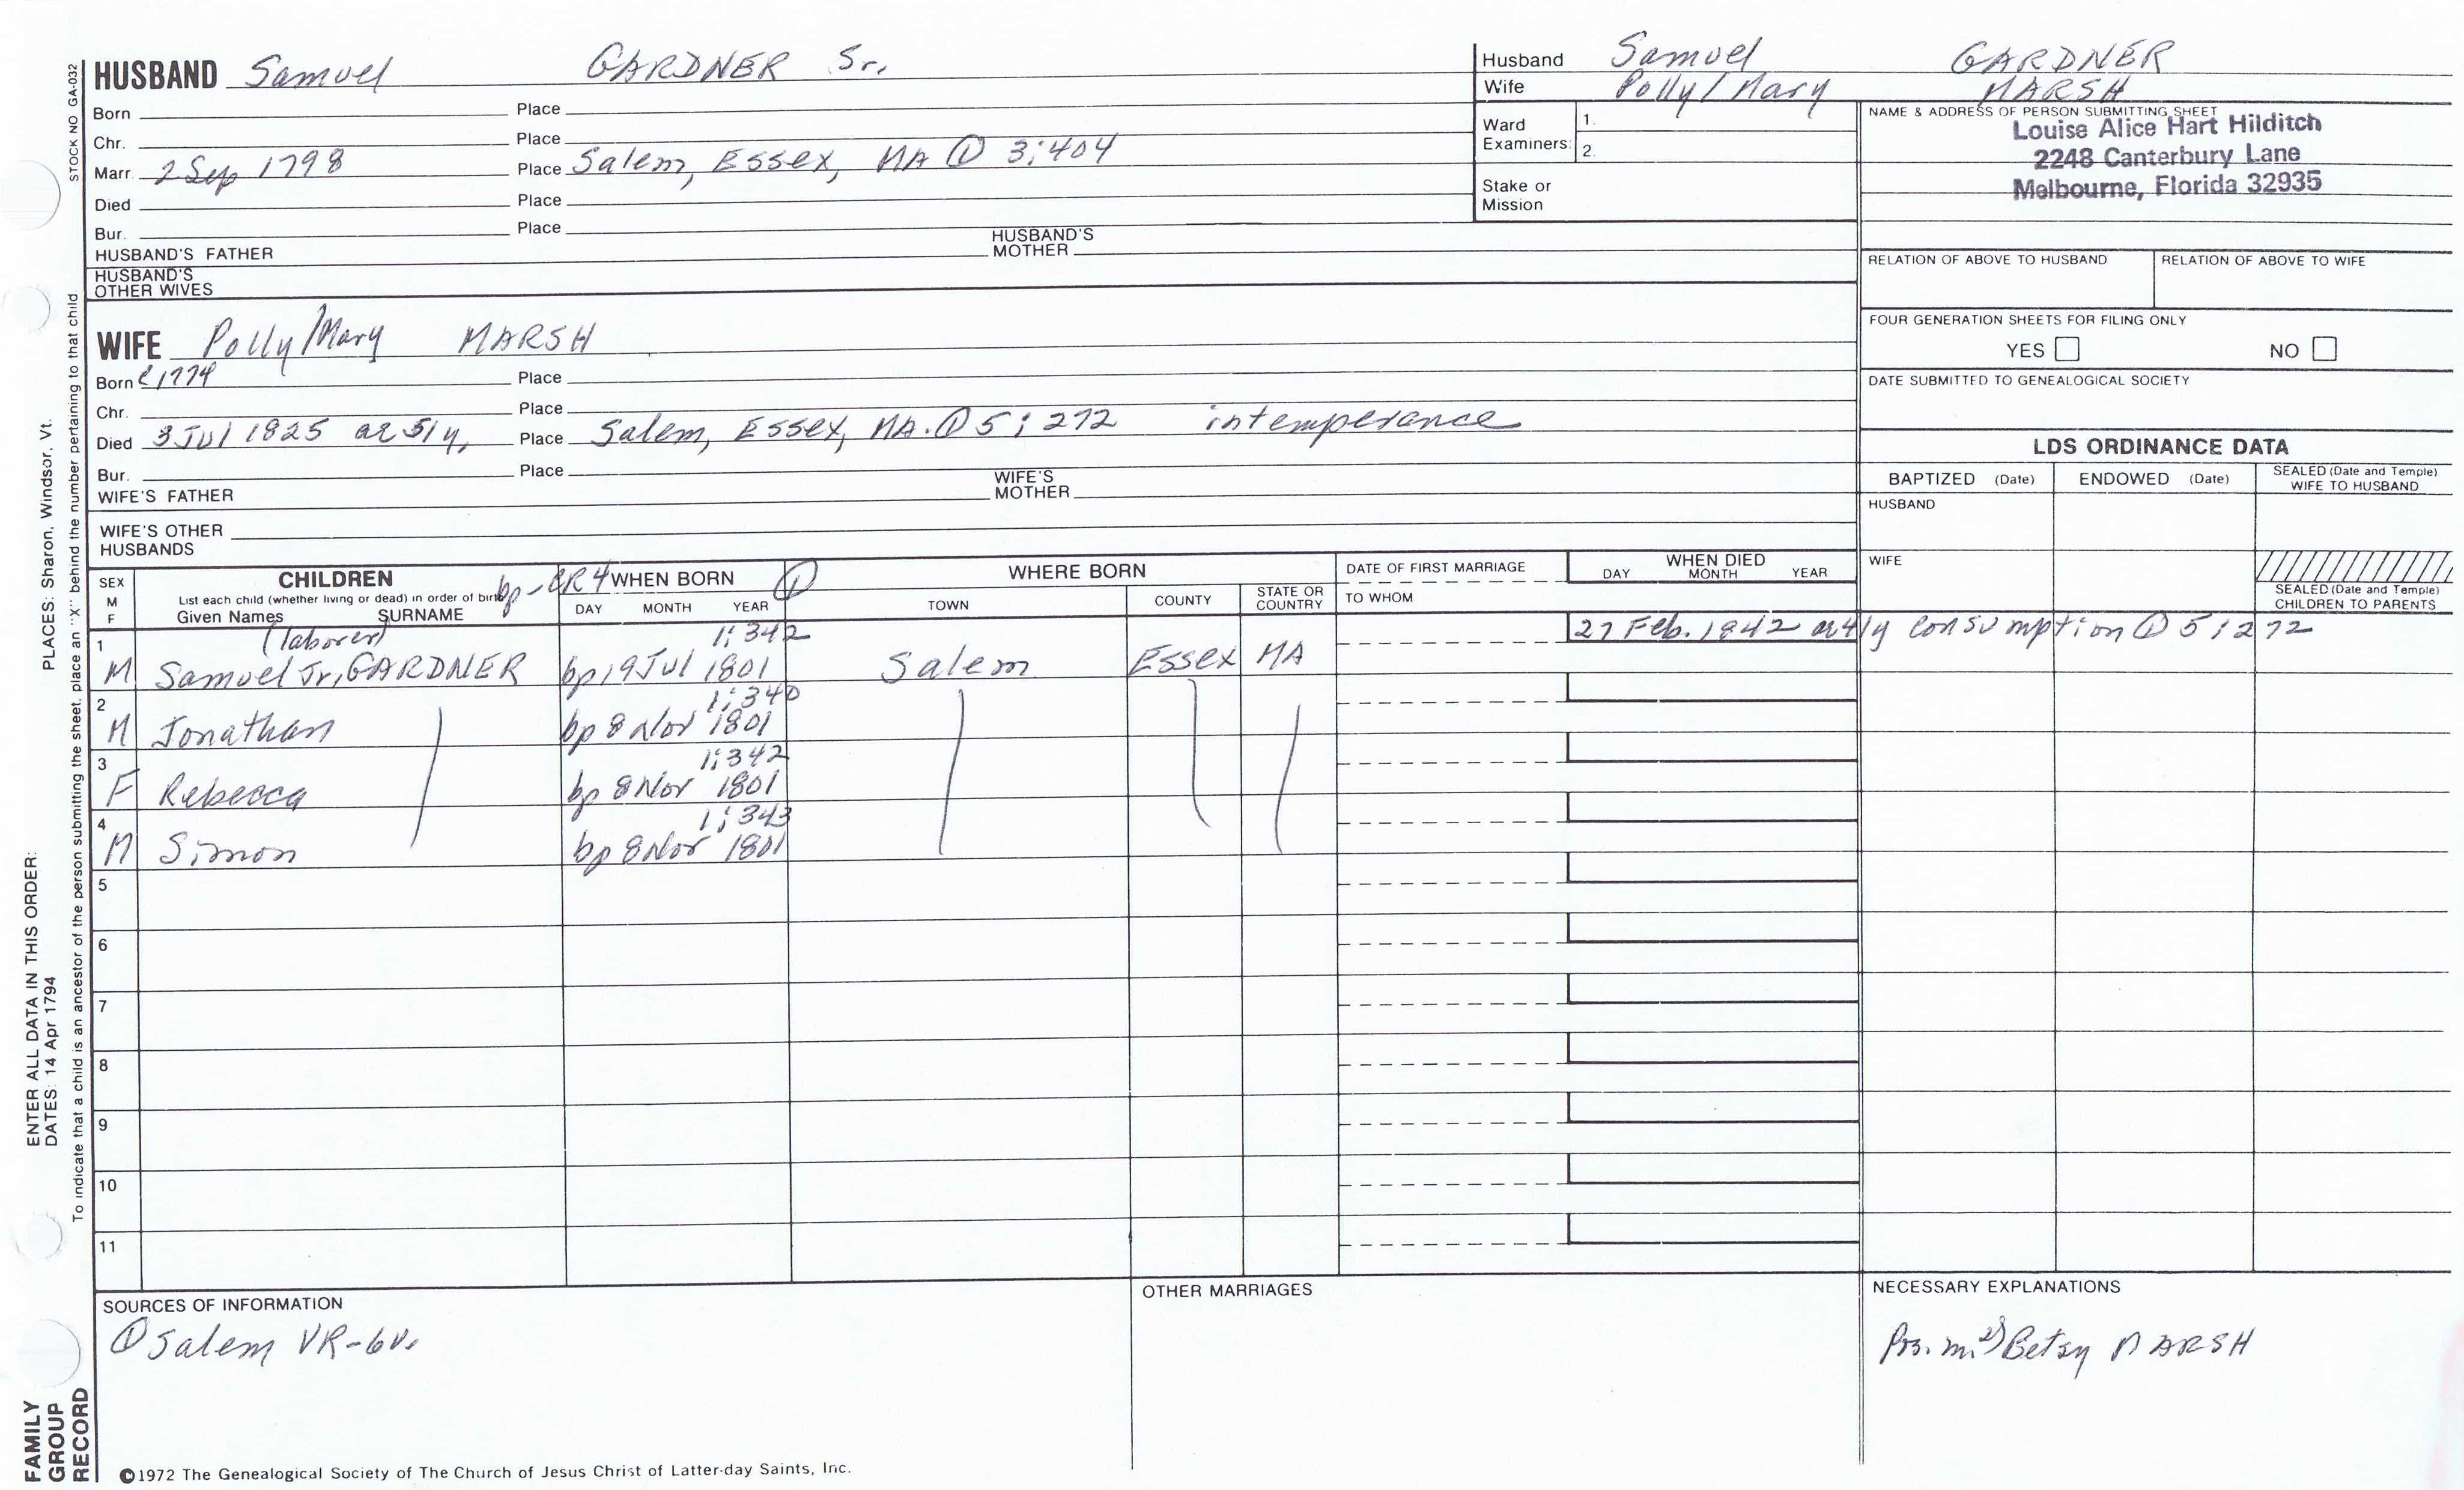 STOCK NO GA-032
PLACES: Sharon, Windsor, Vt.
ENTER ALL DATA IN THIS ORDER:
DATES: 14 Apr 1794
To indicate that a child is an ancestor of the person submitting the sheet, place an "X" behind the number pertaining to that child
FAMILY GROUP RECORD
HUSBAND Samuel GARDNER Sr.
Born Place
Chr. Place
Marr. 2 Sep 1798 Place Salem, Essex, MA ① 3:404
Died Place
Bur. Place
HUSBAND'S FATHER HUSBAND'S MOTHER
HUSBAND'S OTHER WIVES
WIFE Polly/Mary MARSH
Born c1774 Place
Chr. Place
Died 3 Jul 1825 ae 51y, Place Salem, Essex, MA. ① 5:272 intemperance
Bur. Place
WIFE'S FATHER WIFE'S MOTHER
WIFE'S OTHER HUSBANDS
Husband Samuel GARDNER
Wife Polly/Mary MARSH
Ward Examiners: 1.
2.
Stake or Mission
NAME & ADDRESS OF PERSON SUBMITTING SHEET
Louise Alice Hart Hilditch
2248 Canterbury Lane
Melbourne, Florida 32935
RELATION OF ABOVE TO HUSBAND RELATION OF ABOVE TO WIFE
FOUR GENERATION SHEETS FOR FILING ONLY
YES NO
DATE SUBMITTED TO GENEALOGICAL SOCIETY
LDS ORDINANCE DATA
BAPTIZED (Date) ENDOWED (Date) SEALED (Date and Temple) WIFE TO HUSBAND
HUSBAND
WIFE
SEALED (Date and Temple) CHILDREN TO PARENTS
SEX M F
CHILDREN
List each child (whether living or dead) in order of birth
Given Names SURNAME
bp-CR4 WHEN BORN ①
DAY MONTH YEAR
WHERE BORN
TOWN COUNTY STATE OR COUNTRY
DATE OF FIRST MARRIAGE
TO WHOM
WHEN DIED
DAY MONTH YEAR
(laborer) 1:342 27 Feb. 1842 ae 41y consumption ① 5:272
1 M Samuel Jr, GARDNER bp 19 Jul 1801 Salem Essex MA
1:340
2 M Jonathan bp 8 Nov 1801
1:342
3 F Rebecca bp 8 Nov 1801
1:343
4 M Simon bp 8 Nov 1801
5
6
7
8
9
10
11
SOURCES OF INFORMATION
① Salem VR-6v.
OTHER MARRIAGES
NECESSARY EXPLANATIONS
Pos. m. 2) Betsy MARSH
©1972 The Genealogical Society of The Church of Jesus Christ of Latter-day Saints, Inc.